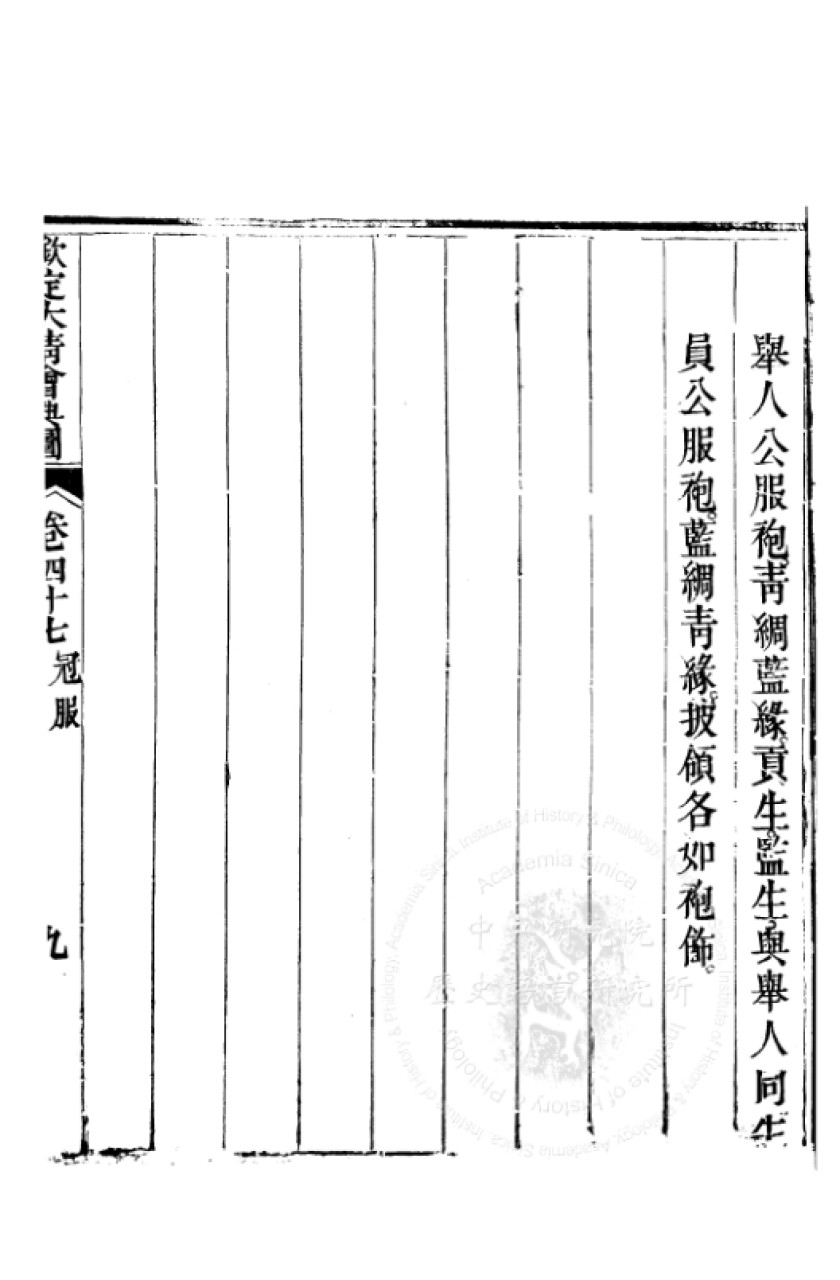 舉人公服袍青綢藍緣貢生監生與舉人同生
員公服袍藍綢青緣披領各如袍飾
欽定大清會典圖
卷四十七 冠服
九
中央研究院
歷史語言研究所
Academia Sinica
Institute of History & Philology